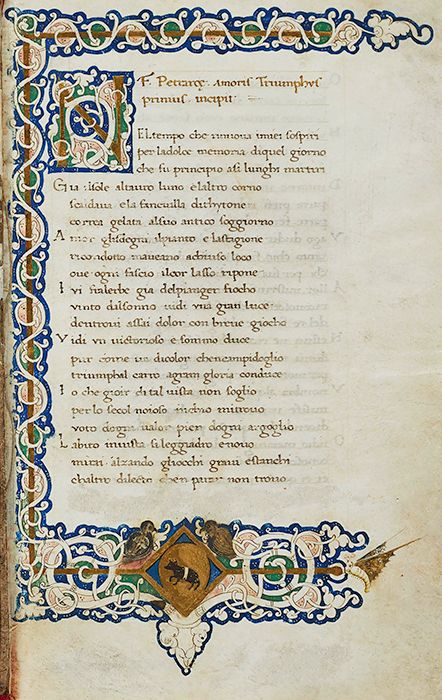 F. Petrarcę Amoris Triumphus
primus incipit
NEl tempo che rinova imiei sospiri
Per ladolce memoria diquel giorno
che fu principio asi lunghi martiri
Gia ilsole altauro luno elaltro corno
scaldava ela fanciulla dithytone
correa gelata alsuo antico soggiorno
Amor glisdegni ilpianto elastagione
ricondotto maveano achiuso loco
ove ogni fascio ilcor lasso ripone
Ivi fralerbe gia delpianger fiocho
vinto dalsonno vidi vna gran luce
dentrovi assai dolor con breve giocho
Vidi vn victorioso e sommo duce
pur come vn dicolor chencampidoglio
triumphal carro agram gloria conduce
Io che gioir dital vista non soglio
per lo secol noioso inchio mitrovo
voto dogni valor pien dogni orgoglio
Labito invista sileggiadro enovo
mirai alzando gliocchi gravi estanchi
chaltro dilecto chen parar non trovo